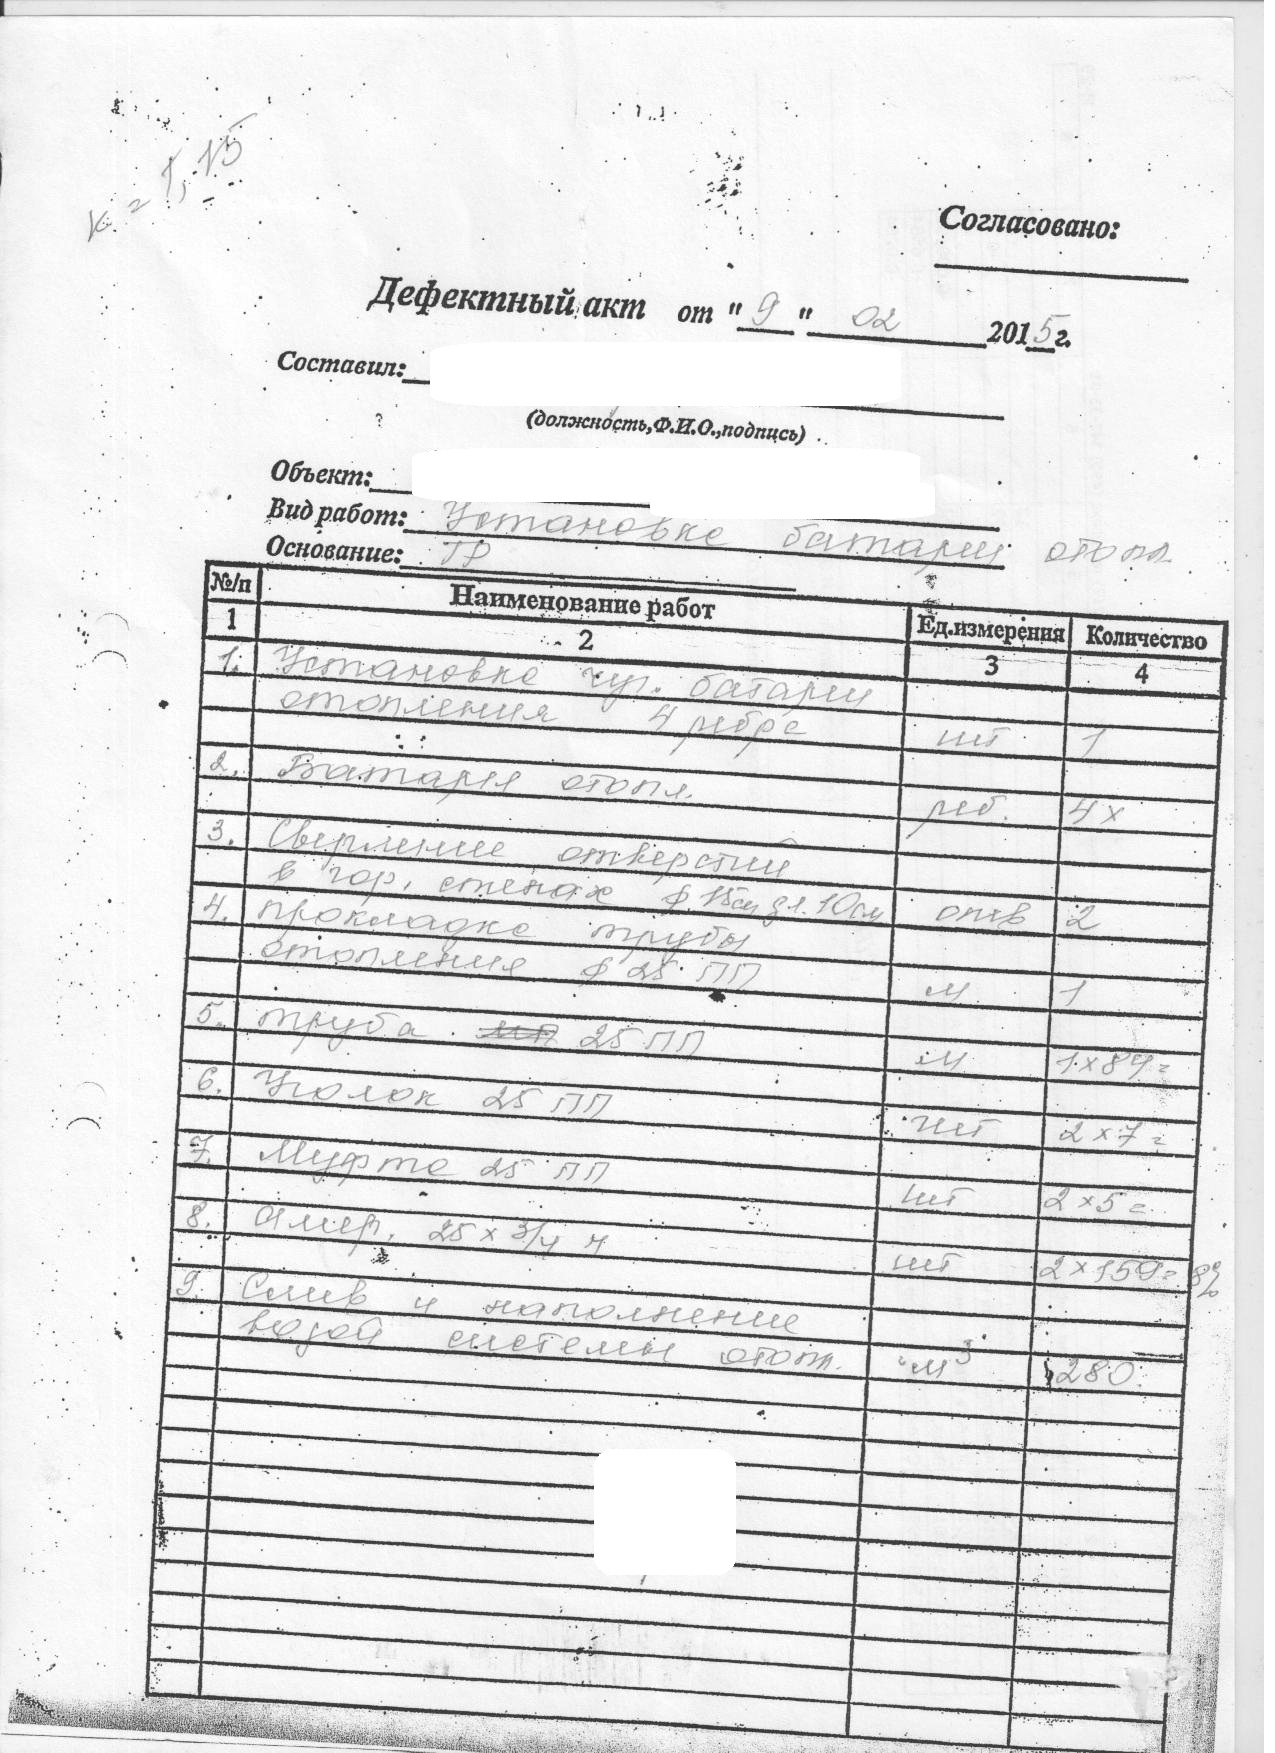 к = 1,15
Согласовано:
Дефектный акт от "9" 02 2015г.
Составил:
(должность,Ф.И.О.,подпись)
Объект:
Вид работ: Установка батареи отопл
Основание: ТР
№/п Наименование работ Ед.измерения Количество
1 2 3 4
1. Установка чуг. батареи
отопления 4 ребра шт 1
2. Батарея отопл.
реб. 4х
3. Сверление отверстий
в гор. стенах ф 15см дл. 10см отв 2
4. прокладка трубы
отопления ф 25 ПП
м 1
5. труба 25 ПП
м 1х84=
6. Уголок 25 ПП
шт 2х7=
7. Муфта 25 ПП
шт 2х5=
8. Амер. 25 х 3/4 н
шт 2х159=
9. Слив и наполнение
водой системы отоп. м3 280